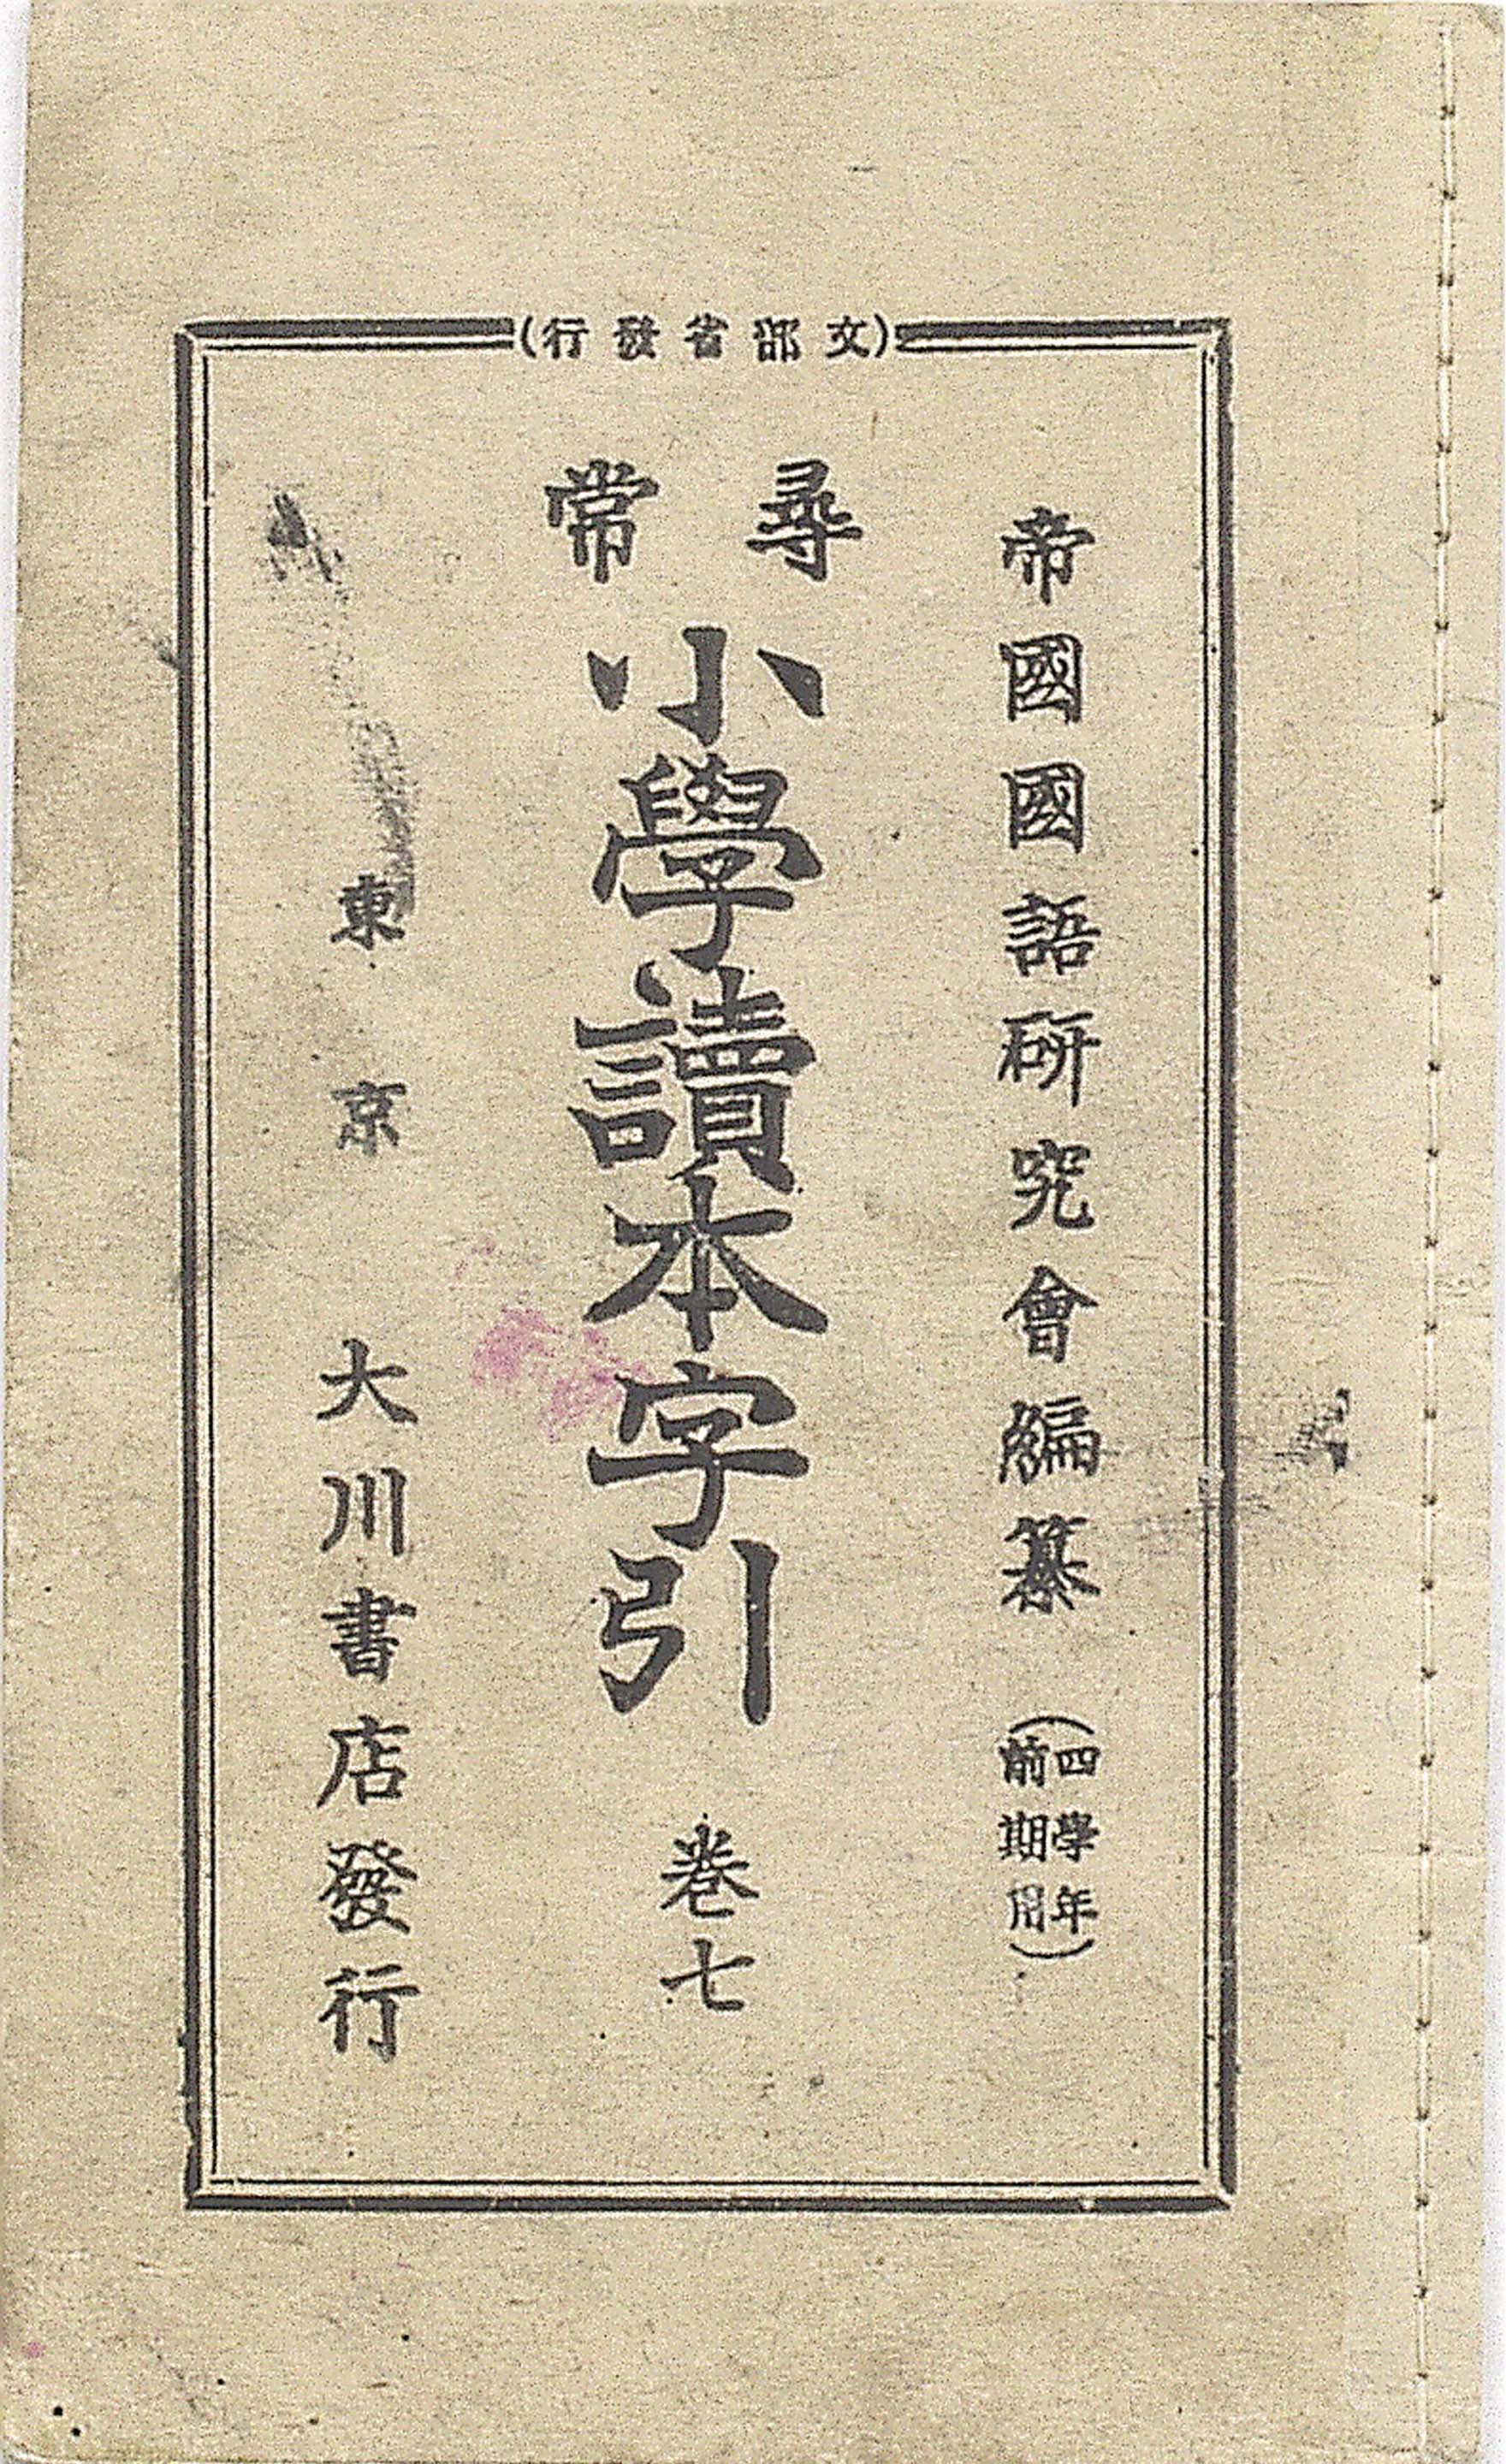 (文部省發行)
帝國國語研究會編纂
(四學年
前期用)
尋常
小學讀本字引
卷七
東京
大川書店發行